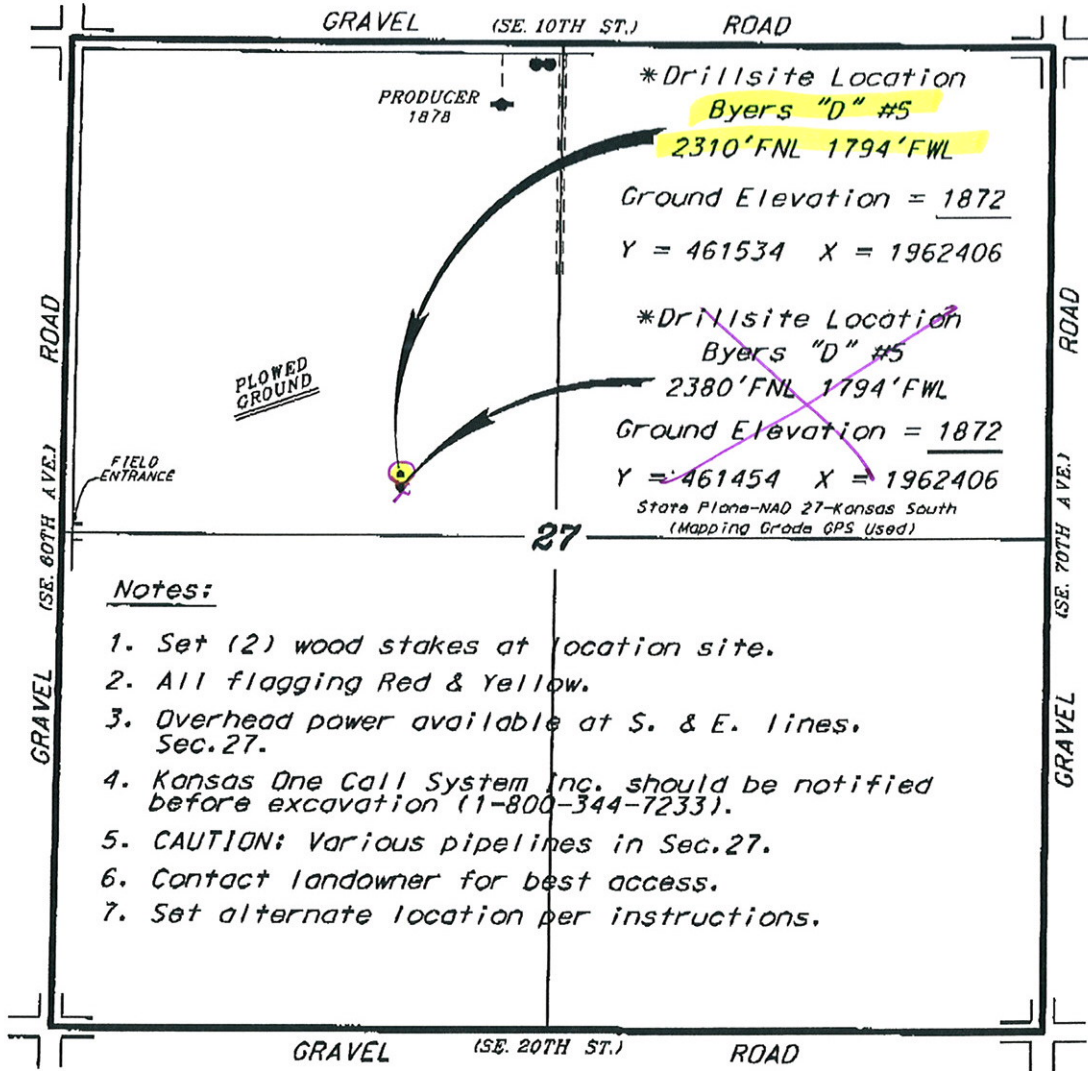 GRAVEL (SE. 10TH ST.) ROAD
PRODUCER
1878
*Drillsite Location
Byers "D" #5
2310'FNL 1794'FWL
Ground Elevation = 1872
Y = 461534 X = 1962406
*Drillsite Location
Byers "D" #5
2380'FNL 1794'FWL
Ground Elevation = 1872
Y = 461454 X = 1962406
State Plane-NAD 27-Kansas South
(Mapping Grade GPS Used)
PLOWED
GROUND
FIELD
ENTRANCE
GRAVEL (SE. 60TH AVE.) ROAD
GRAVEL (SE. 70TH AVE.) ROAD
27
Notes:
1. Set (2) wood stakes at location site.
2. All flagging Red & Yellow.
3. Overhead power available at S. & E. lines.
Sec.27.
4. Kansas One Call System Inc. should be notified
before excavation (1-800-344-7233).
5. CAUTION: Various pipelines in Sec.27.
6. Contact landowner for best access.
7. Set alternate location per instructions.
GRAVEL (SE. 20TH ST.) ROAD